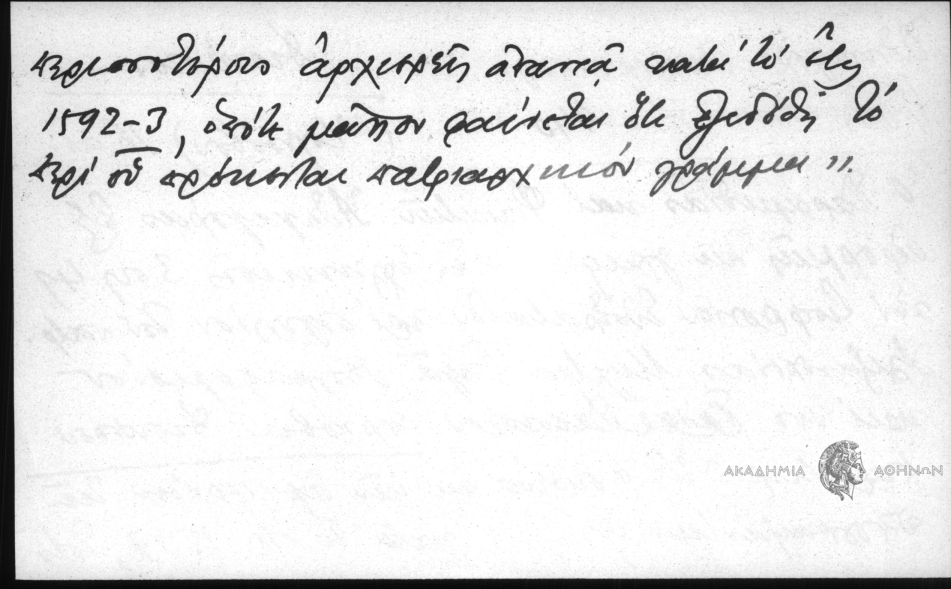 περισσοτέρους ἀρχιερεῖς ἀπαντᾷ κατὰ τὸ ἔτος
1592-3, ὁπότε μᾶλλον φαίνεται ὅτι ἐξεδόθη τὸ
περὶ οὗ πρόκειται πατριαρχικὸν γράμμα".
ΑΚΑΔΗΜΙΑ ΑΘΗΝΩΝ